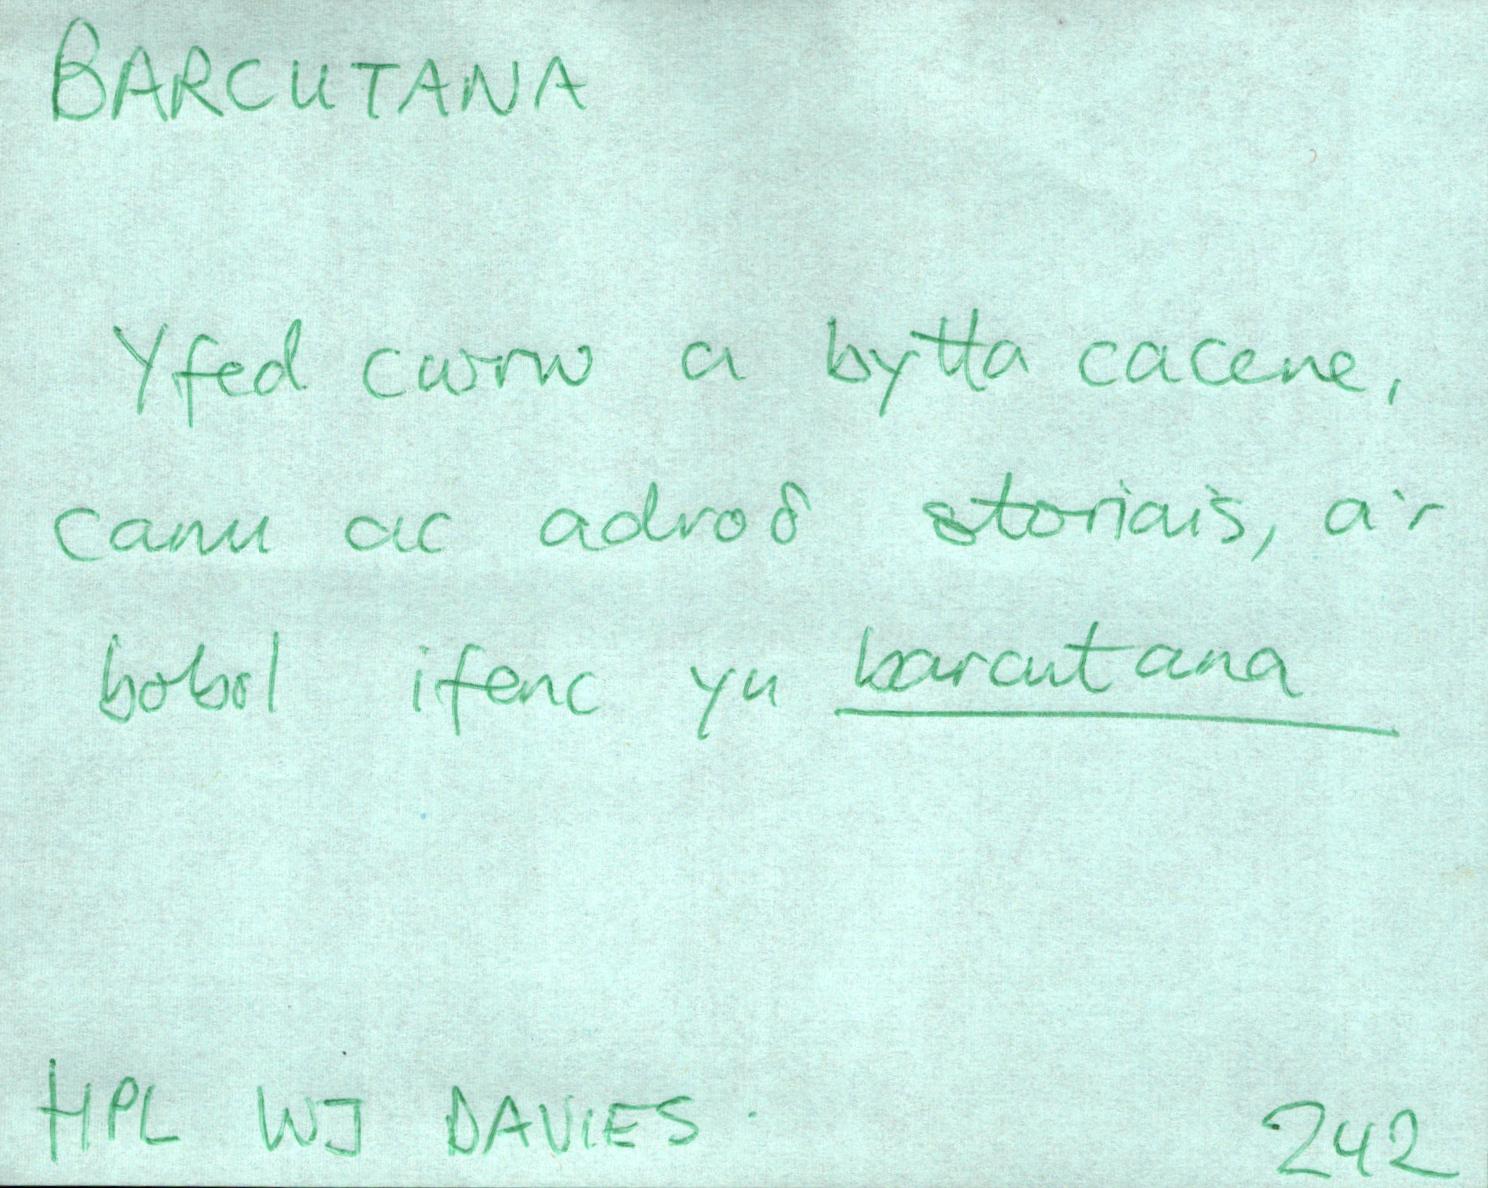 BARCUTANA
Yfed cwrw a bytta cacene,
canu ac adroδ storiais, a'r
bobol ifenc yn barcutana
HPL WJ DAVIES.
242